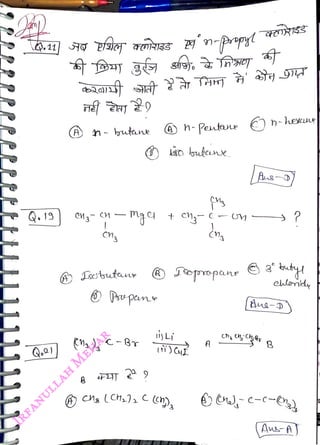 Q.11 जब एथिल क्लोराइड एवं n-propyl क्लोराइड
की क्रिया वुर्ट्ज अभि० के मिश्रण की
करवायी जाती है तो निम्न में कौन प्राप्त
नही होता है?
(A) n- butane (B) n-Pentane (C) n-hexane
(D) iso butane
Ans-D
Q.19 CH3- CH — MgCl + CH3- C - OH ⟶ ?
CH3 CH3 CH3
(A) Isobutane (B) Isopropane (C) 3° butyl chloride
(D) Propane
Ans-D
Q.21 (CH3)3 C-Br i) Li (ii) CuI A CH3 CH2 CH2Br B
B क्या है ?
(A) CH3 (CH2)2 C (CH3)3 (B) (CH3)3 - C - C - (CH3)3
Ans-A
IRFANULLAH MEHAR